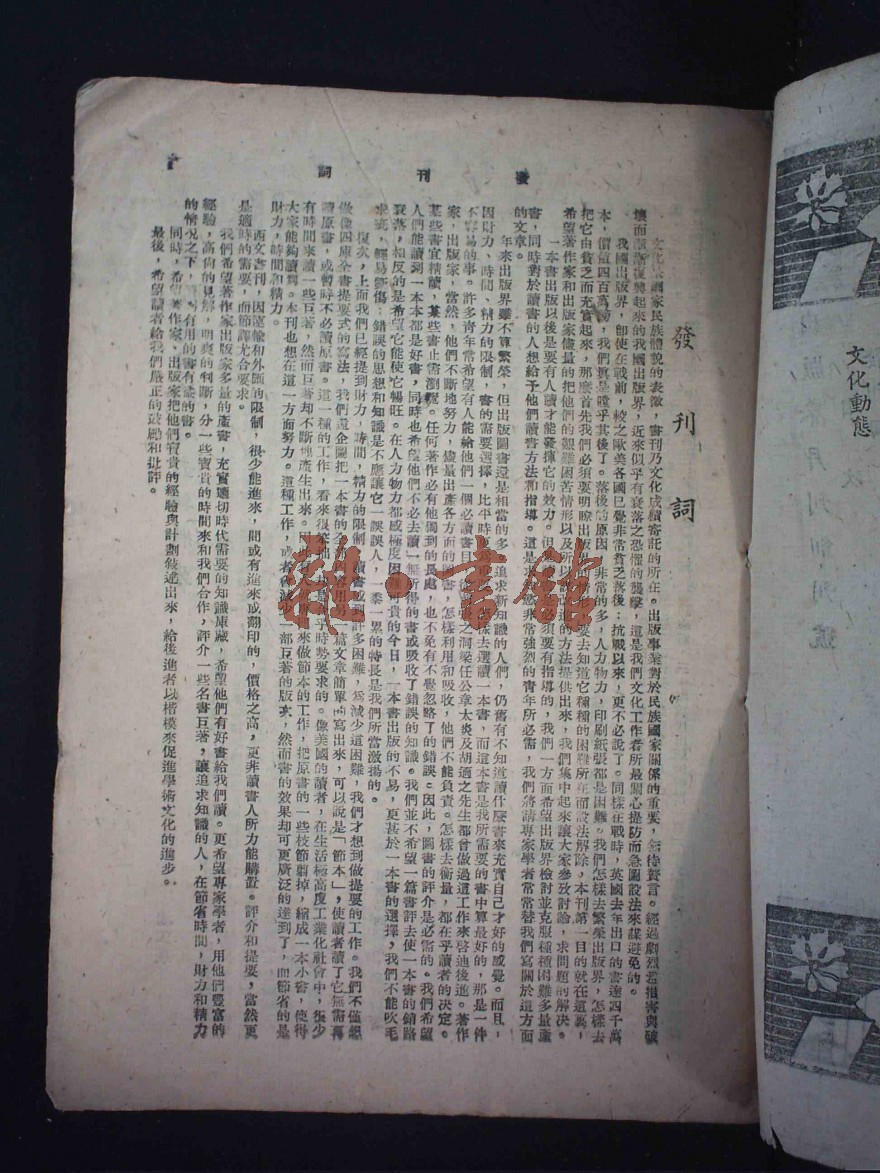 發刊詞
發刊詞
文化　國家民族體貌的表徵，書刊乃文化成績寄託的所在。出版事業對於民族國家關係的重要，無待贅言。經過劇烈若損害與破
壞而　漸復興起來的我國出版界，近來似乎有衰落之恐懼的襲擊，這是我們文化工作者所最關心提防而急圖設法來謀避免的。
我國出版界，即使在戰前，較之歐美各國已覺非常貧乏落後；抗戰以來，更不必說了。同樣在戰時，英國去年出口的書達四千萬
本，價值四百萬鎊，我們真是瞠乎其後了。落後的原因，非常的多，人力物力，印刷紙張都是困難。我們怎樣去繁榮出版界，怎樣去
把它由貧乏而充實起來，那麼首先我們必須要明瞭出版界的　　，要去知道它種種的困難所在而設法解除，本刊第一目的就在這裏，
希望著作家和出版家儘量的把他們的艱難困苦情形以及所以　　進的方法提供出來，我們集中起來讓大家參攷討論，求問題的解決。
一本書出版以後是要有人讀才能發揮它的效力。但　　　是必須要有指導的，我們一方面希望出版界檢討並克服種種困難多量產
書，同時對於讀書的人想給予他們讀書方法和指導。這是求　慾非常強烈的青年所必需，我們爲請專家學者常常替我們寫關於這方面
的文章。
年來出版界雖不算繁榮，但出版圖書還是相當的多，追求新知識的人們，仍舊有不知道讀什麼書來充實自己才好的感覺。而且，
因財力、時間、精力的限制，書的需要選擇，比平時　爲重要，怎樣去選讀一本書，而這本書是我所需要的書中算最好的，那是一件
不容易的事。許多青年常希望有人能給他們一個必讀書目　　　張之洞梁任公章太炎及胡適之先生都曾做過這工作來啓迪後進。著作
家，出版家，當然，他們不斷地努力，儘量出產各方面的圖書，怎樣利用和吸收，他們不能負責。怎樣去衡量，都在乎讀者的決定。
某些書宜精讀，某些書止需瀏覽。任何著作必有他獨到的長處，也不免有不覺忽略了的錯誤。因此，圖書的評介是必需的。我們希望
人們能讀到一本本都是好書，同時也希望他們不必去讀一無所得的書或吸收了錯誤的知識。我們並不希望一篇書評去使一本書的銷路
衰落，相反的是希望它能使它暢旺。在人力物力都感極度困難　貴的今日，一本書出版的不易，更甚於一本書的選擇，我們不能吹毛
求疵，輕易　傷；錯誤的思想和知識是不應讓它一誤誤人，一黍一累的特長是我們所當激揚的。
復次，上面我們已經提到財力，時間，精力的限制，讀書感到許多困難，爲減少這困難，我們才想到做提要的工作。我們不僅想
做像四庫全書提要式的寫法，我們還企圖把一本書的全部內容用另一篇文章簡單　寫出來，可以說是「節本」，使讀者讀了它無需再
讀原書，或暫時不必讀原書。這一種的工作，看來很笨拙　　　　合乎時勢要求的。像美國的讀者，在生活極高度工業化社會中，很少
有時間來讀一些巨著，然而巨著却不斷地產生出來。　　有　　　來做節本的工作，把原書的一些枝節剪掉，縮成一本小書，使得
大家能夠讀到。本刊也想在這一方面努力。這種工作，或者會減少一部巨著的版次，然而書的效果却可更廣泛的達到了，而節省的是
財力，時間和精力。
西文書刊，因運輸和外匯的限制，很少能進來，間或有進來或翻印的，價格之高，更非讀書人所力能購置。評介和提要，當然更
是適時的需要，而節譯尤合要求。
我們希望著作家出版家多量的產書，充實適切時代需要的知識庫藏，希望他們有好書給我們讀。更希望專家學者，用他們豐富的
經驗，高尚的見解，明爽的判斷，分一些寶貴的時間來和我們合作，評介一些名書巨著，讓追求知識的人，在節省時間，財力和精力
的情況之下，　　有用的書有益的書。
同時，希望著作家、出版家把他們寶貴的經驗與計劃敍述出來，給後進者以楷模來促進學術文化的進步。
最後，希望讀者給我們嚴正的鼓勵和批評。
雜·言館
文化動態